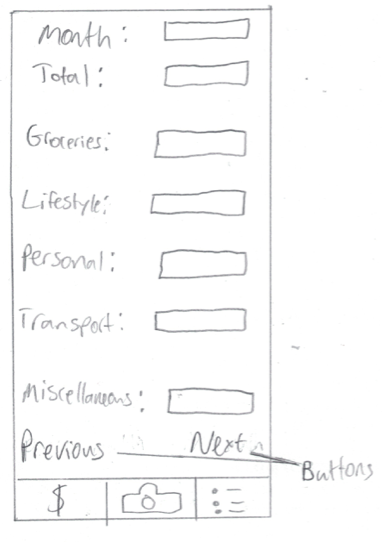 Month:
Total:
Groceries:
Lifestyle:
Personal:
Transport:
Miscellaneous:
Previous
Next
Buttons
$